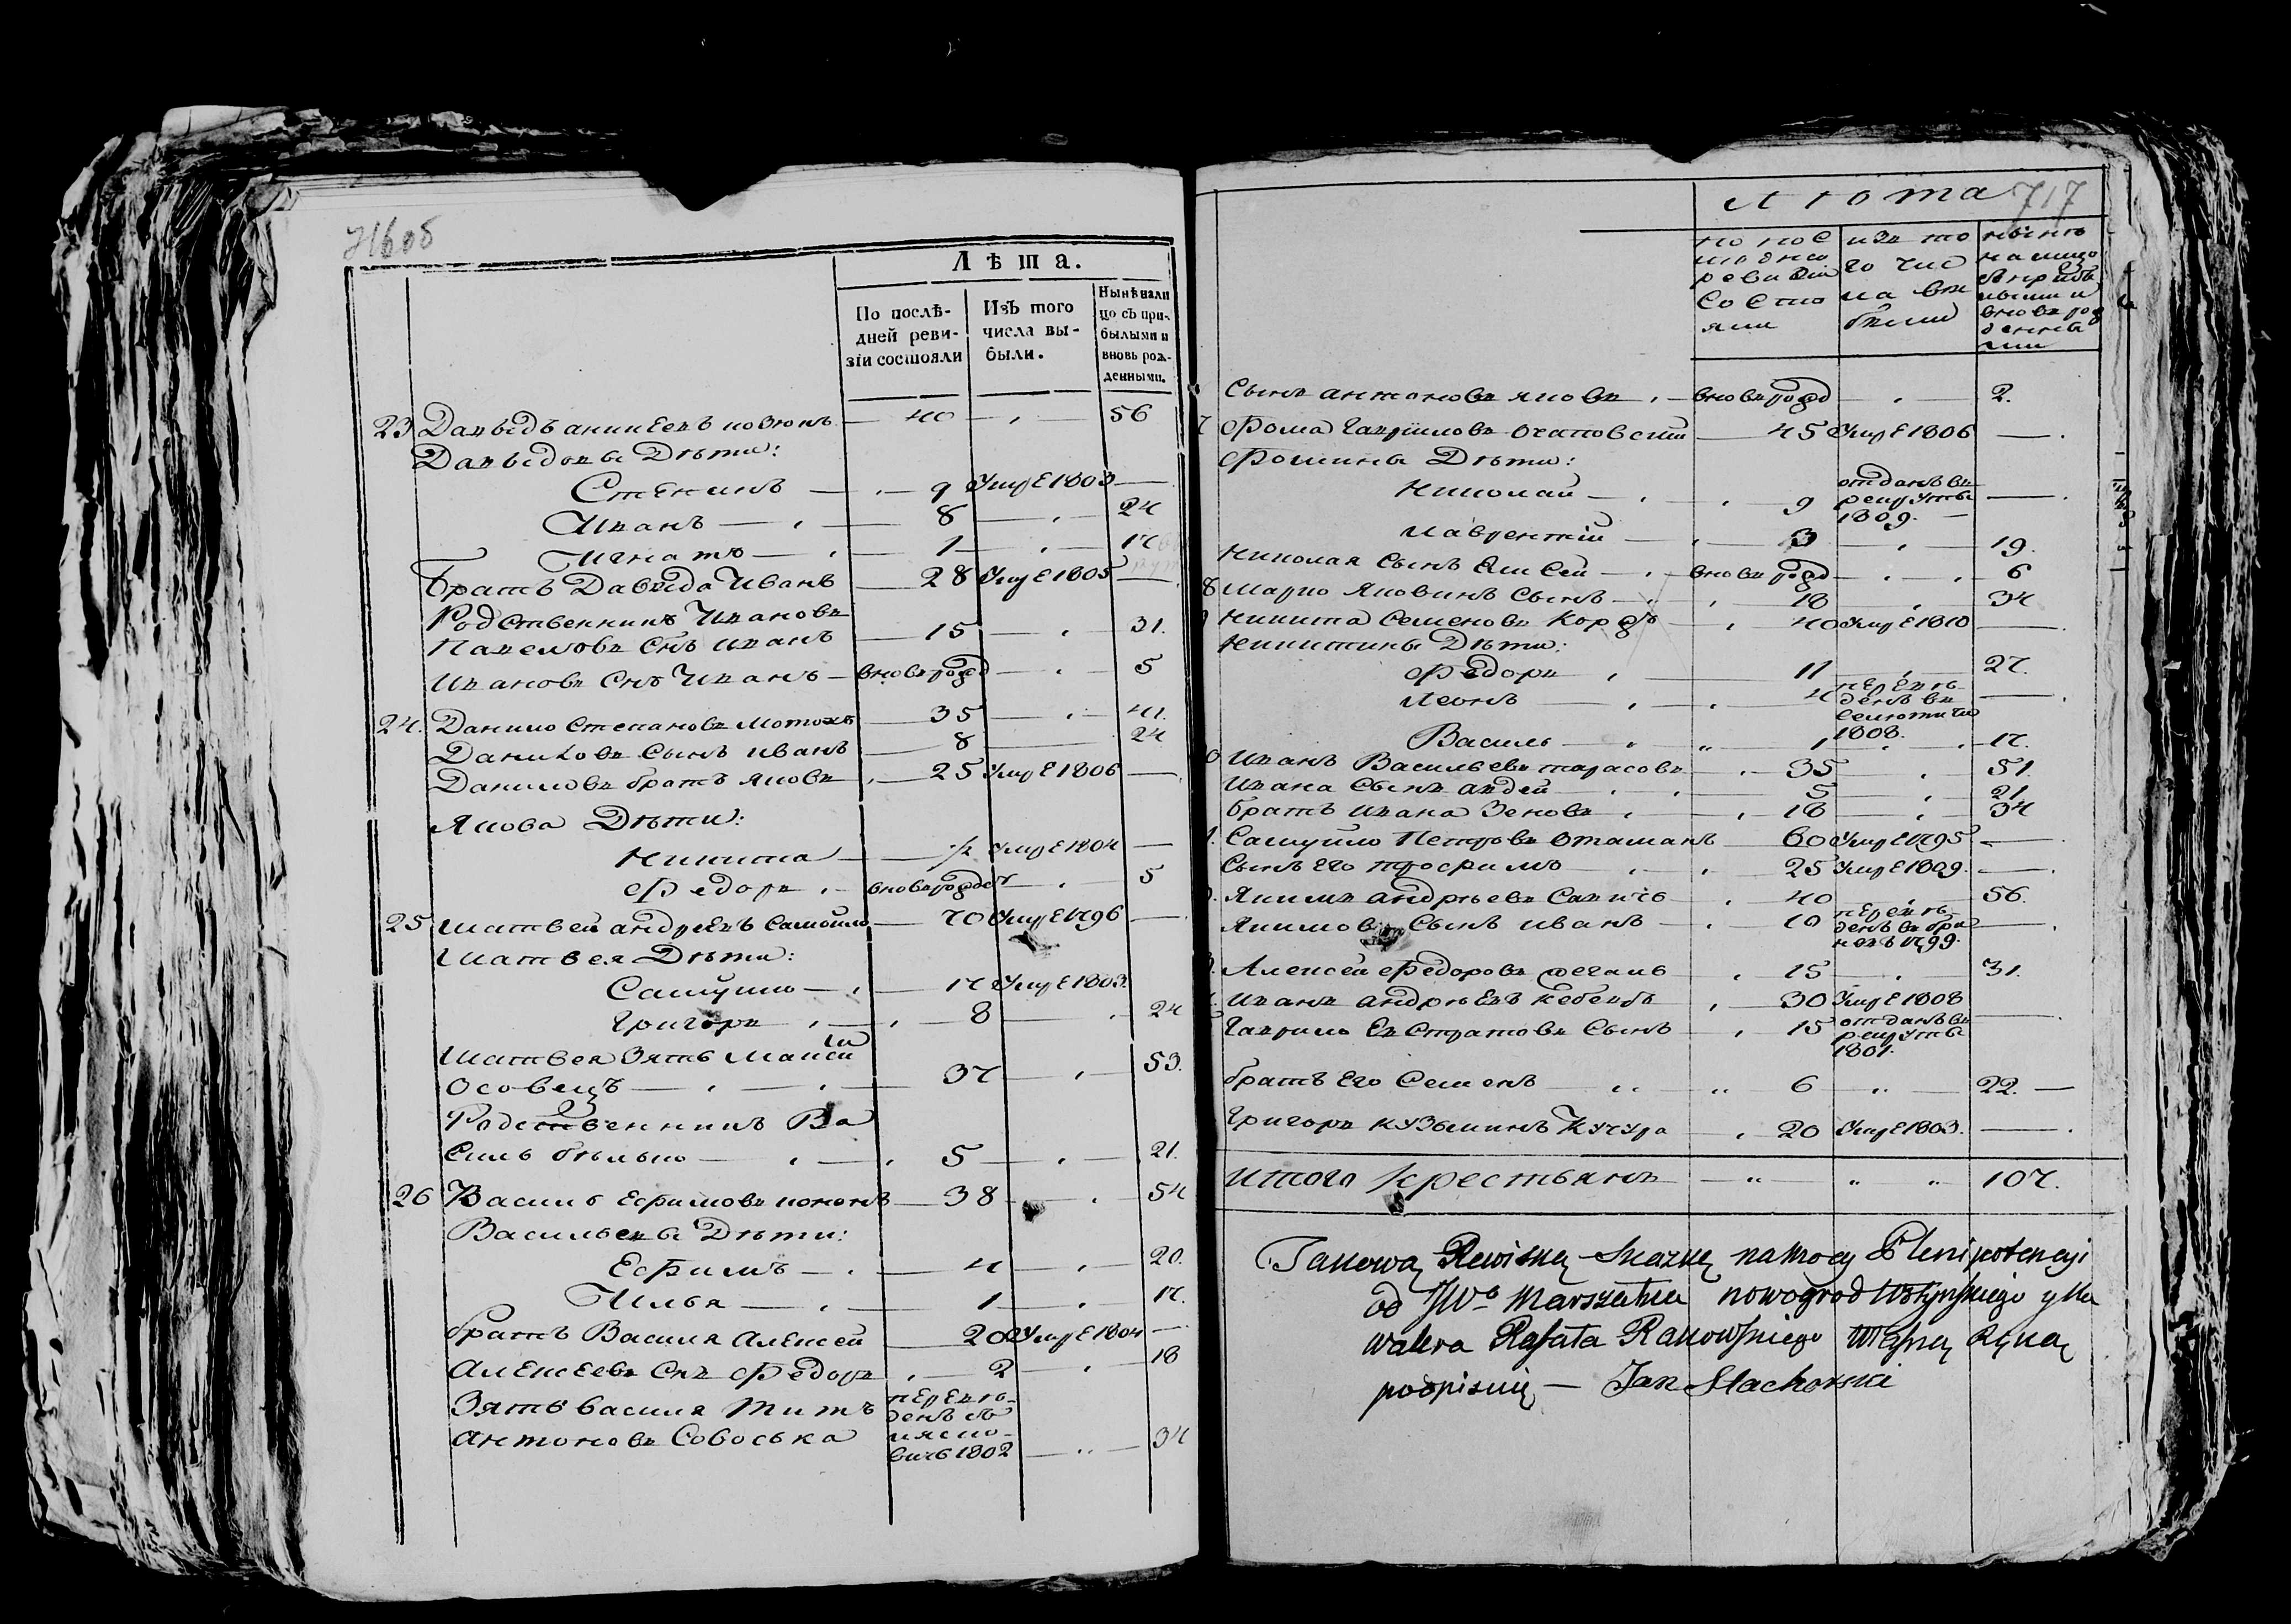 716об
Лѣта.
По послѣ- Изъ того Нынѣ нали
дней реви- числа вы- цо съ при-
зіи состояли были. былыми и
вновь рож-
денными.
23 Давыдъ аникеевъ — 40 — 56
Давыдовы Дѣти:
Степанъ — 9 умре 1803 —
Иванъ — 8 — 24
Игнатъ — 1 — 17
Братъ Давида Иванъ — 28 умре 1805 —
Родственникъ Ивановъ
Павеловъ Снъ иванъ — 15 — 31.
Ивановъ Снъ Иванъ — вновь рожд — 5
24. Данило Степановъ — 35 — 41.
Даниловъ Сынъ иванъ — 8 — 24
Даниловъ братъ яковъ — 25 умре 1806 —
Якова Дѣти:
Никита — 1/2 умре 1804 —
Федоръ — вновь рожден — 5
25 Матвей андреевъ Самойло — 70 умре 1796 —
Матвея Дѣти:
Самуило — 17 умре 1803.
Григоръ — 8 — 24
Матвея Зять
Осовецъ — 37 — 53.
Родственникъ Ва
силь — 5 — 21.
26 Василь Ефимовъ кононъ — 38 — 54
Васильевы Дѣти:
Ефимъ — 4 — 20.
Илья — 1 — 17.
братъ Василя Алексей — 20 умре 1804 —
Алексеевъ Снъ Федоръ — 2 — 18
Зять василя Титъ переве-
антоновъ Совоська денъ
1802 — 34
717
Лѣта
по пос изъ то нынѣ
лѣдней го чис на лицо
ревизіи ла вы съ прибы
состо были лыми и
яли вновь рож
денны
ми
Сынъ антоновъ яковъ — вновь рожд — 2.
Фома Гавриловъ — 45 умре 1806 —
Фомины Дѣти:
Николай — 9 отданъ въ рекруты 1809. —
лаврентій — 3 — 19.
Николая Сынъ — вновь рожд — 6
Марко Яковинъ Сынъ — 18 — 34
Никита Семеновъ — 40 умре 1810 —
Никитины Дѣти:
Федоръ — 11 — 27.
Леонъ — 4 переве
денъ въ
1808. —
Василь — 1 — 17.
Иванъ Васильевъ тарасовъ — 35 — 51.
Ивана Сынъ авдей — 5 — 21.
братъ ивана Зеновъ — 18 — 34
Самуйло Петровъ Отаманъ — 60 умре 1795 —
Сынъ Его трофимъ — 25 умре 1809. —
Якимъ андреевъ Савичъ — 40 — 56.
Якимовъ Сынъ иванъ — 10 переве
денъ въ
1799. —
Алексей Федоровъ — 15 — 31.
Иванъ андреевъ — 30 умре 1808
Гаврило Евстратовъ Сынъ — 15 отданъ въ
рекруты
1801. —
братъ Его Семенъ — 6 — 22. —
Григоръ Кузьминъ Кучура — 20 умре 1803. —
Итого крестьянъ — 107.
Takową Rewiską Skazkę na Mocy Plenipotencyi
od JWo Marszałka nowogrod Wołyńskiego y Ka
walera Rafała Rakowskiego Własną Ręką
podpisuię — Jan Stachorski